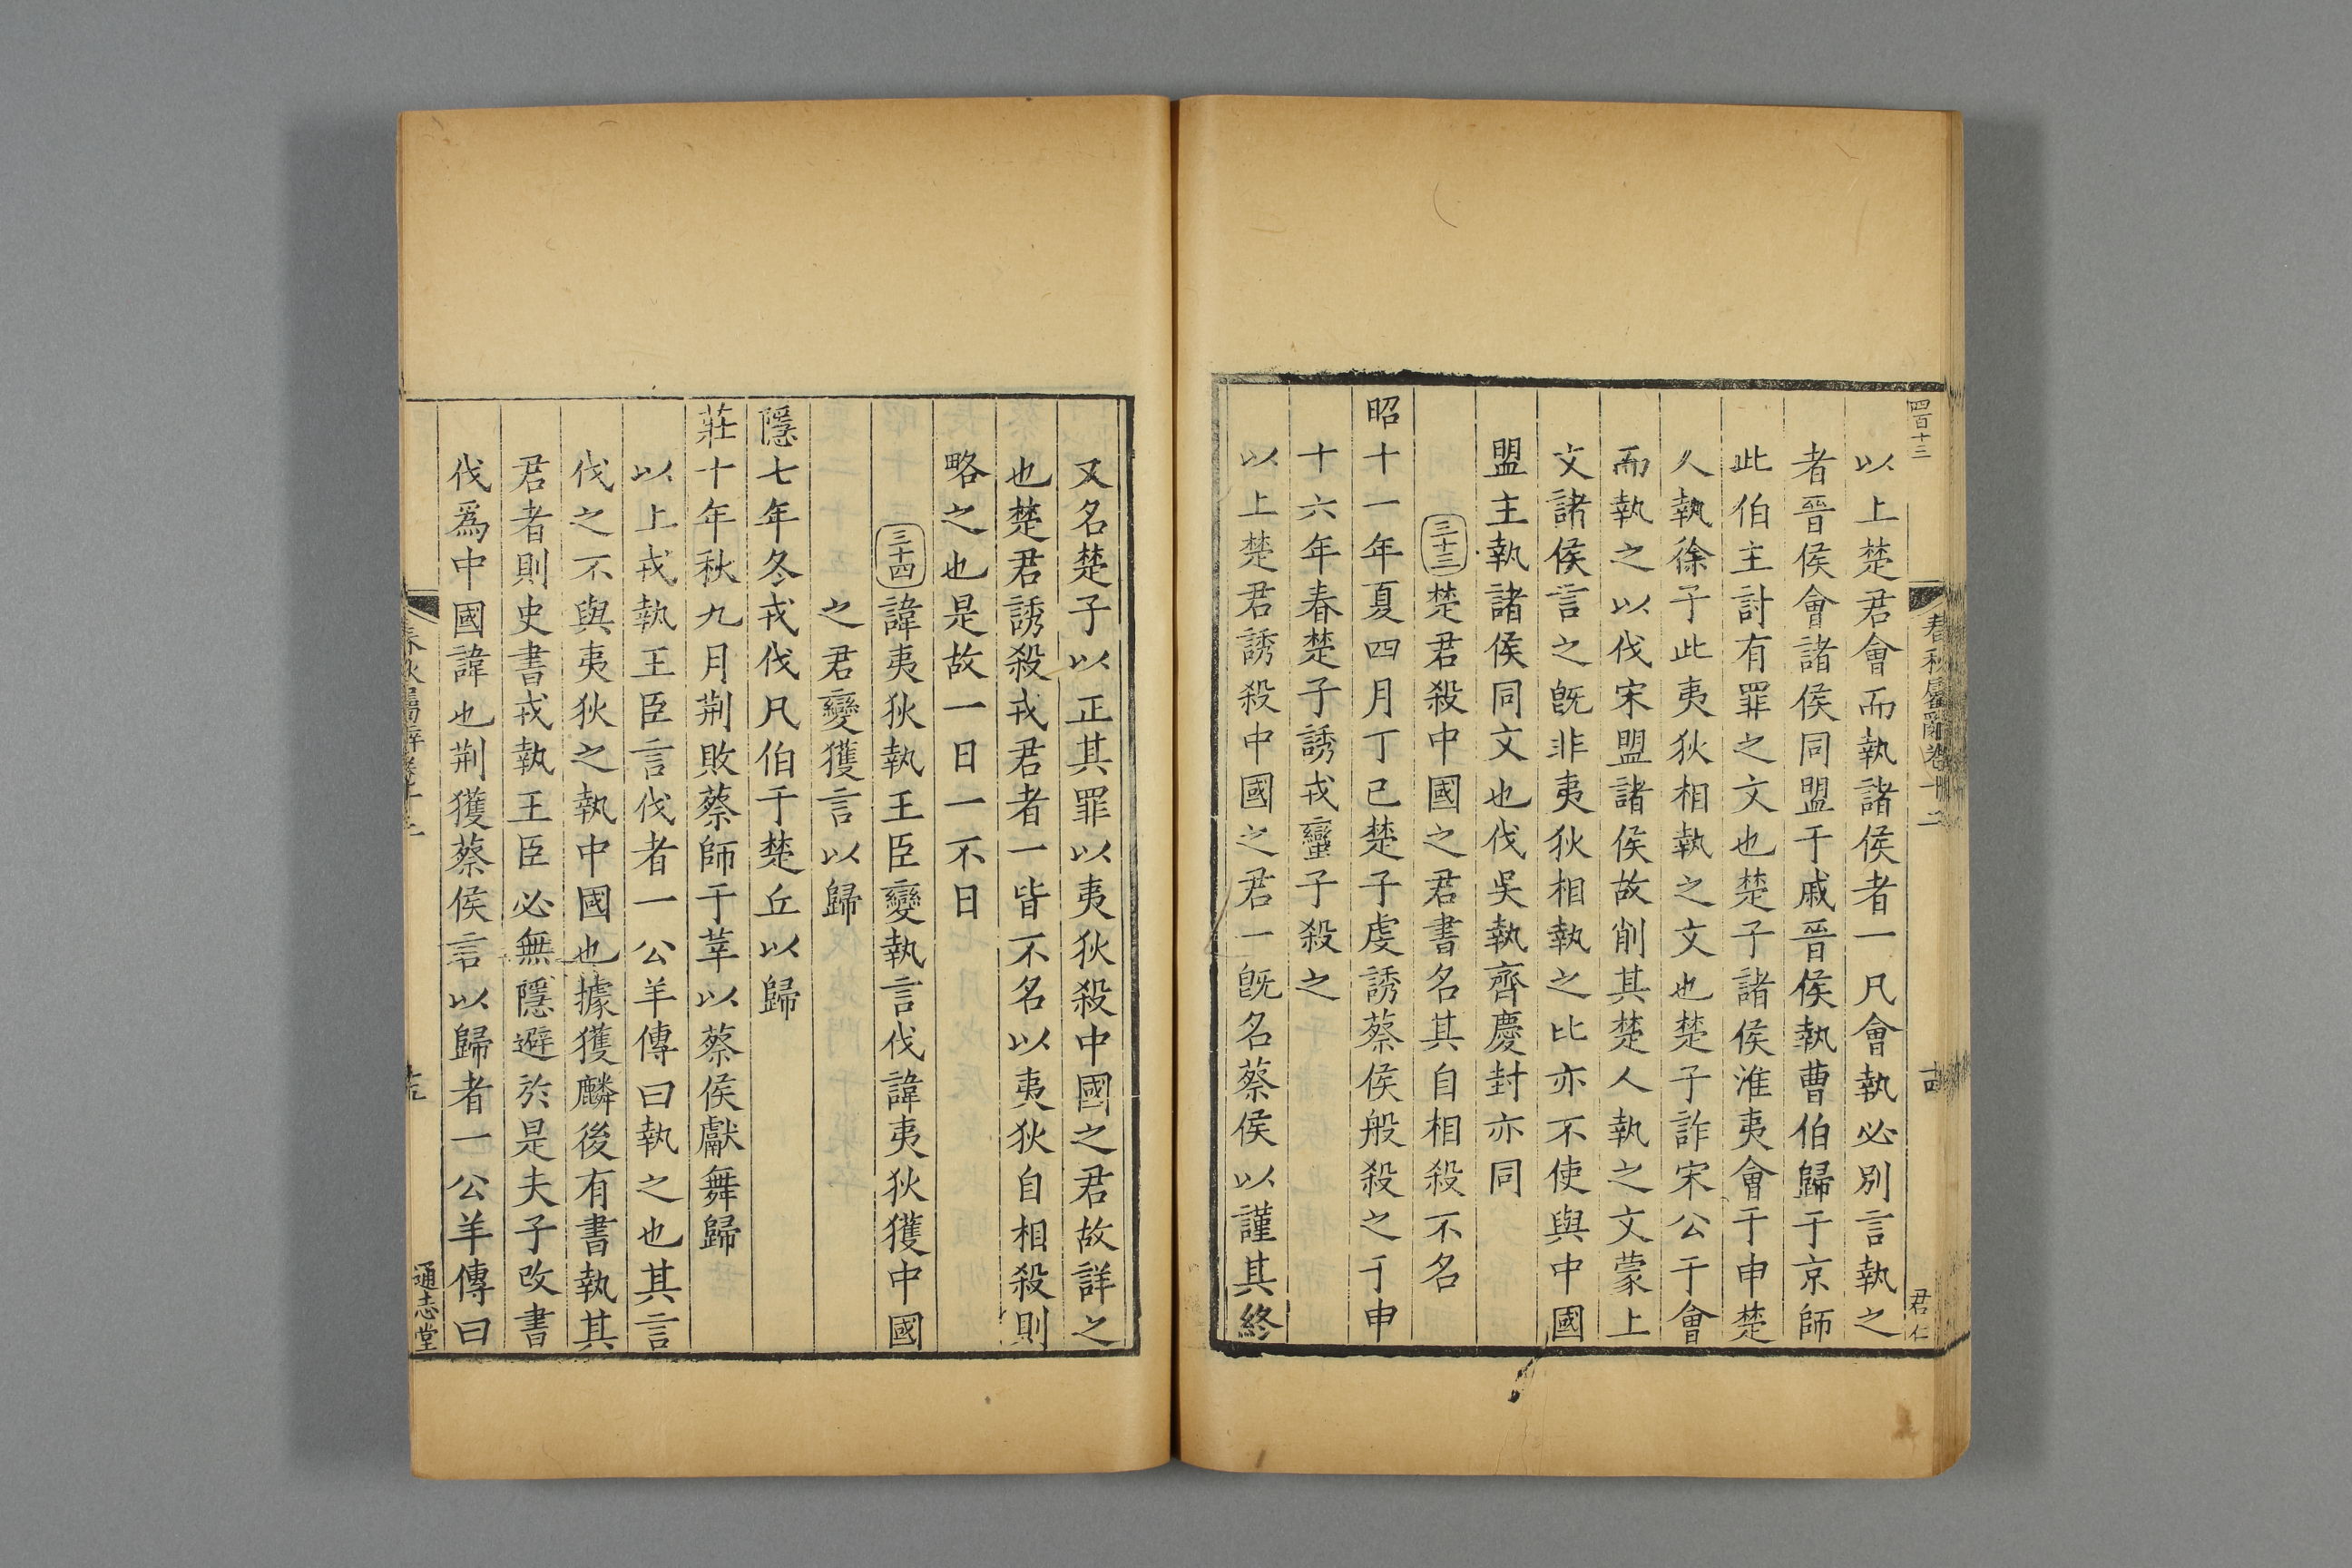 四百十三
春秋屬辭卷十二
十四
君仁
以上楚君會而執諸侯者一凡會執必别言執之
者晉侯會諸侯同盟于戚晉侯執曹伯歸于京師
此伯主討有罪之文也楚子諸侯淮夷會于申楚
人執徐子此夷狄相執之文也楚子詐宋公于會
而執之以伐宋盟諸侯故削其楚人執之文蒙上
文諸侯言之旣非夷狄相執之比亦不使與中國
盟主執諸侯同文也伐吳執齊慶封亦同
三十三楚君殺中國之君書名其自相殺不名
昭十一年夏四月丁巳楚子虔誘蔡侯般殺之于申
十六年春楚子誘戎蠻子殺之
以上楚君誘殺中國之君一旣名蔡侯以謹其終
又名楚子以正其罪以夷狄殺中國之君故詳之
也楚君誘殺戎君者一皆不名以夷狄自相殺則
略之也是故一日一不日
三十四諱夷狄執王臣變執言伐諱夷狄獲中國
之君變獲言以歸
隱七年冬戎伐凡伯于楚丘以歸
莊十年秋九月荆敗蔡師于莘以蔡侯獻舞歸
以上戎執王臣言伐者一公羊傳曰執之也其言
伐之不與夷狄之執中國也據獲麟後有書執其
君者則史書戎執王臣必無隱避於是夫子改書
伐爲中國諱也荆獲蔡侯言以歸者一公羊傳曰
春秋屬辭卷十二
通志堂